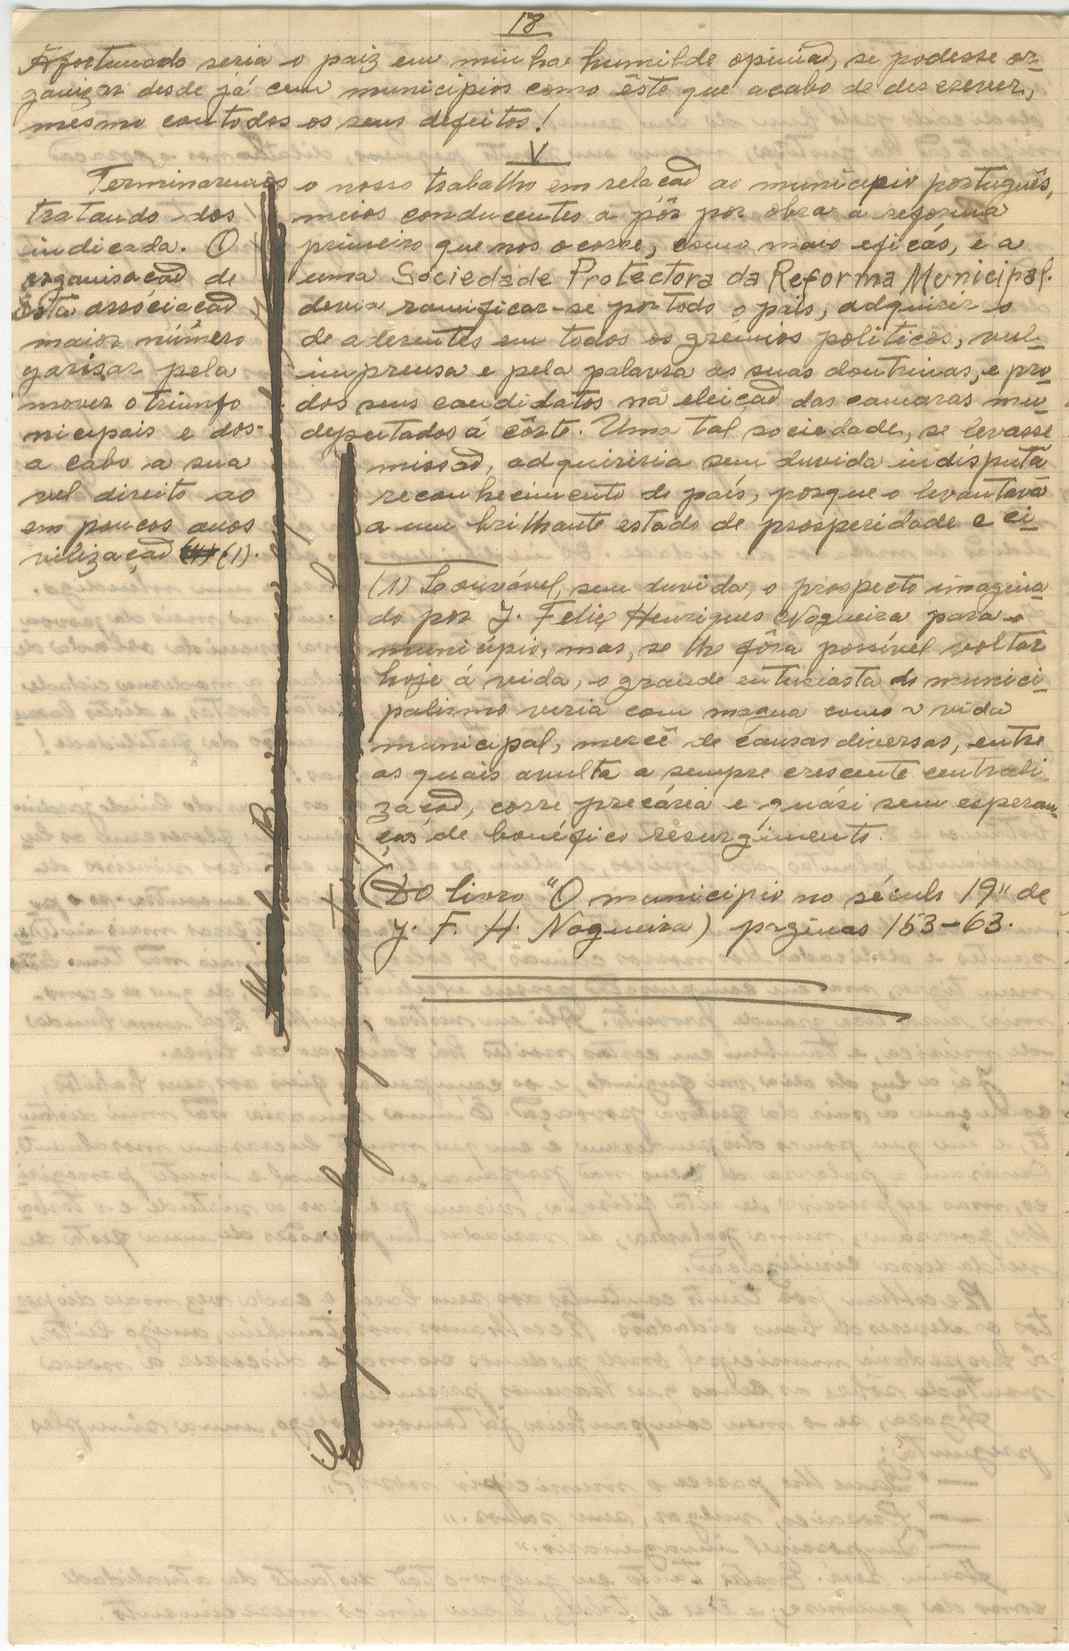 18
Afortunado seria o paiz em minha humilde opinião, se podesse or-
ganizar desde já cem municipios como êste que acabo de descrever,
mesmo com todos os seus defeitos!
V
Terminaremos o nosso trabalho em relação ao municipio português,
tratando dos meios conducentes a pôr por obra a reforma
indicada. O primeiro que nos ocorre, como mais eficás, é a
organisação de uma Sociedade Protectora da Reforma Municipal.
Esta associação devia ramificar-se por todo o país, adquirir o
maior número de aderentes em todos os grémios politicos, vul-
garisar pela imprensa e pela palavra as suas doutrinas, e pro-
mover o triunfo dos seus candidatos na eleição das camaras mu-
nicipais e dos deputados á côrte. Uma tal sociedade, se levasse
a cabo a sua missão, adquiriria sem duvida indisputa-
vel direito ao reconhecimento do país, porque o levantava
em poucos anos a um brilhante estado de prosperidade e ci-
vilização (1).
(1) Louvável, sem duvida, o prospecto imagina-
do por J. Felix Henriques Nogueira para o
município, mas, se lhe fôra possível voltar
hoje á vida, o grande entusiasta do munici-
palismo veria com magua como a vida
municipal, mercê de causas diversas, entre
as quais avulta a sempre crescente centrali-
zação, corre precária e quási sem esperan-
ças de benéfico resurgimento.
(Do livro "O municipio no século 19" de
J. F. H. Nogueira) paginas 153-63.